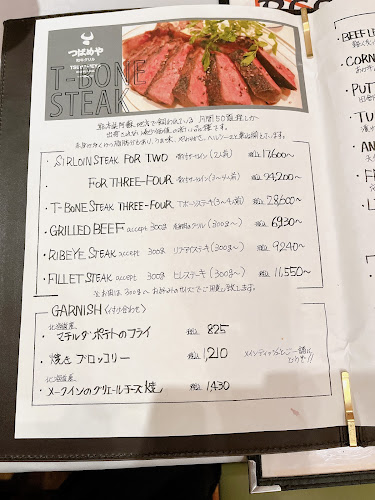 つばめや
T-BONE
STEAK
熊本県阿蘇地方で飼われている 月間50頭程しか
・SIRLOIN STEAK FOR TWO 骨付サーロイン(2人前) 税込 17,600〜
・FOR THREE-FOUR 骨付サーロイン(3〜4人前) 税込 24,200〜
・T-BONE STEAK THREE-FOUR Tボーンステーキ(3〜4人前) 税込 28,600〜
・GRILLED BEEF accept 300g (300g〜) 税込 6,930〜
・RIBEYE STEAK accept 300g リブアイステーキ(300g〜) 税込 9,240〜
・FILLET STEAK accept 300g ヒレステーキ(300g〜) 税込 11,550〜
GARNISH <付け合わせ>
北海道産
・マチルダポテトのフライ 税込 825
・焼きブロッコリー 税込 1,210
メインディッシュとご一緒に
北海道産
・メークインのグリエールチーズ焼 税込 1,430
・BEEF LE
・CORN
・PUTT
・TU
・AN
・FI
・L